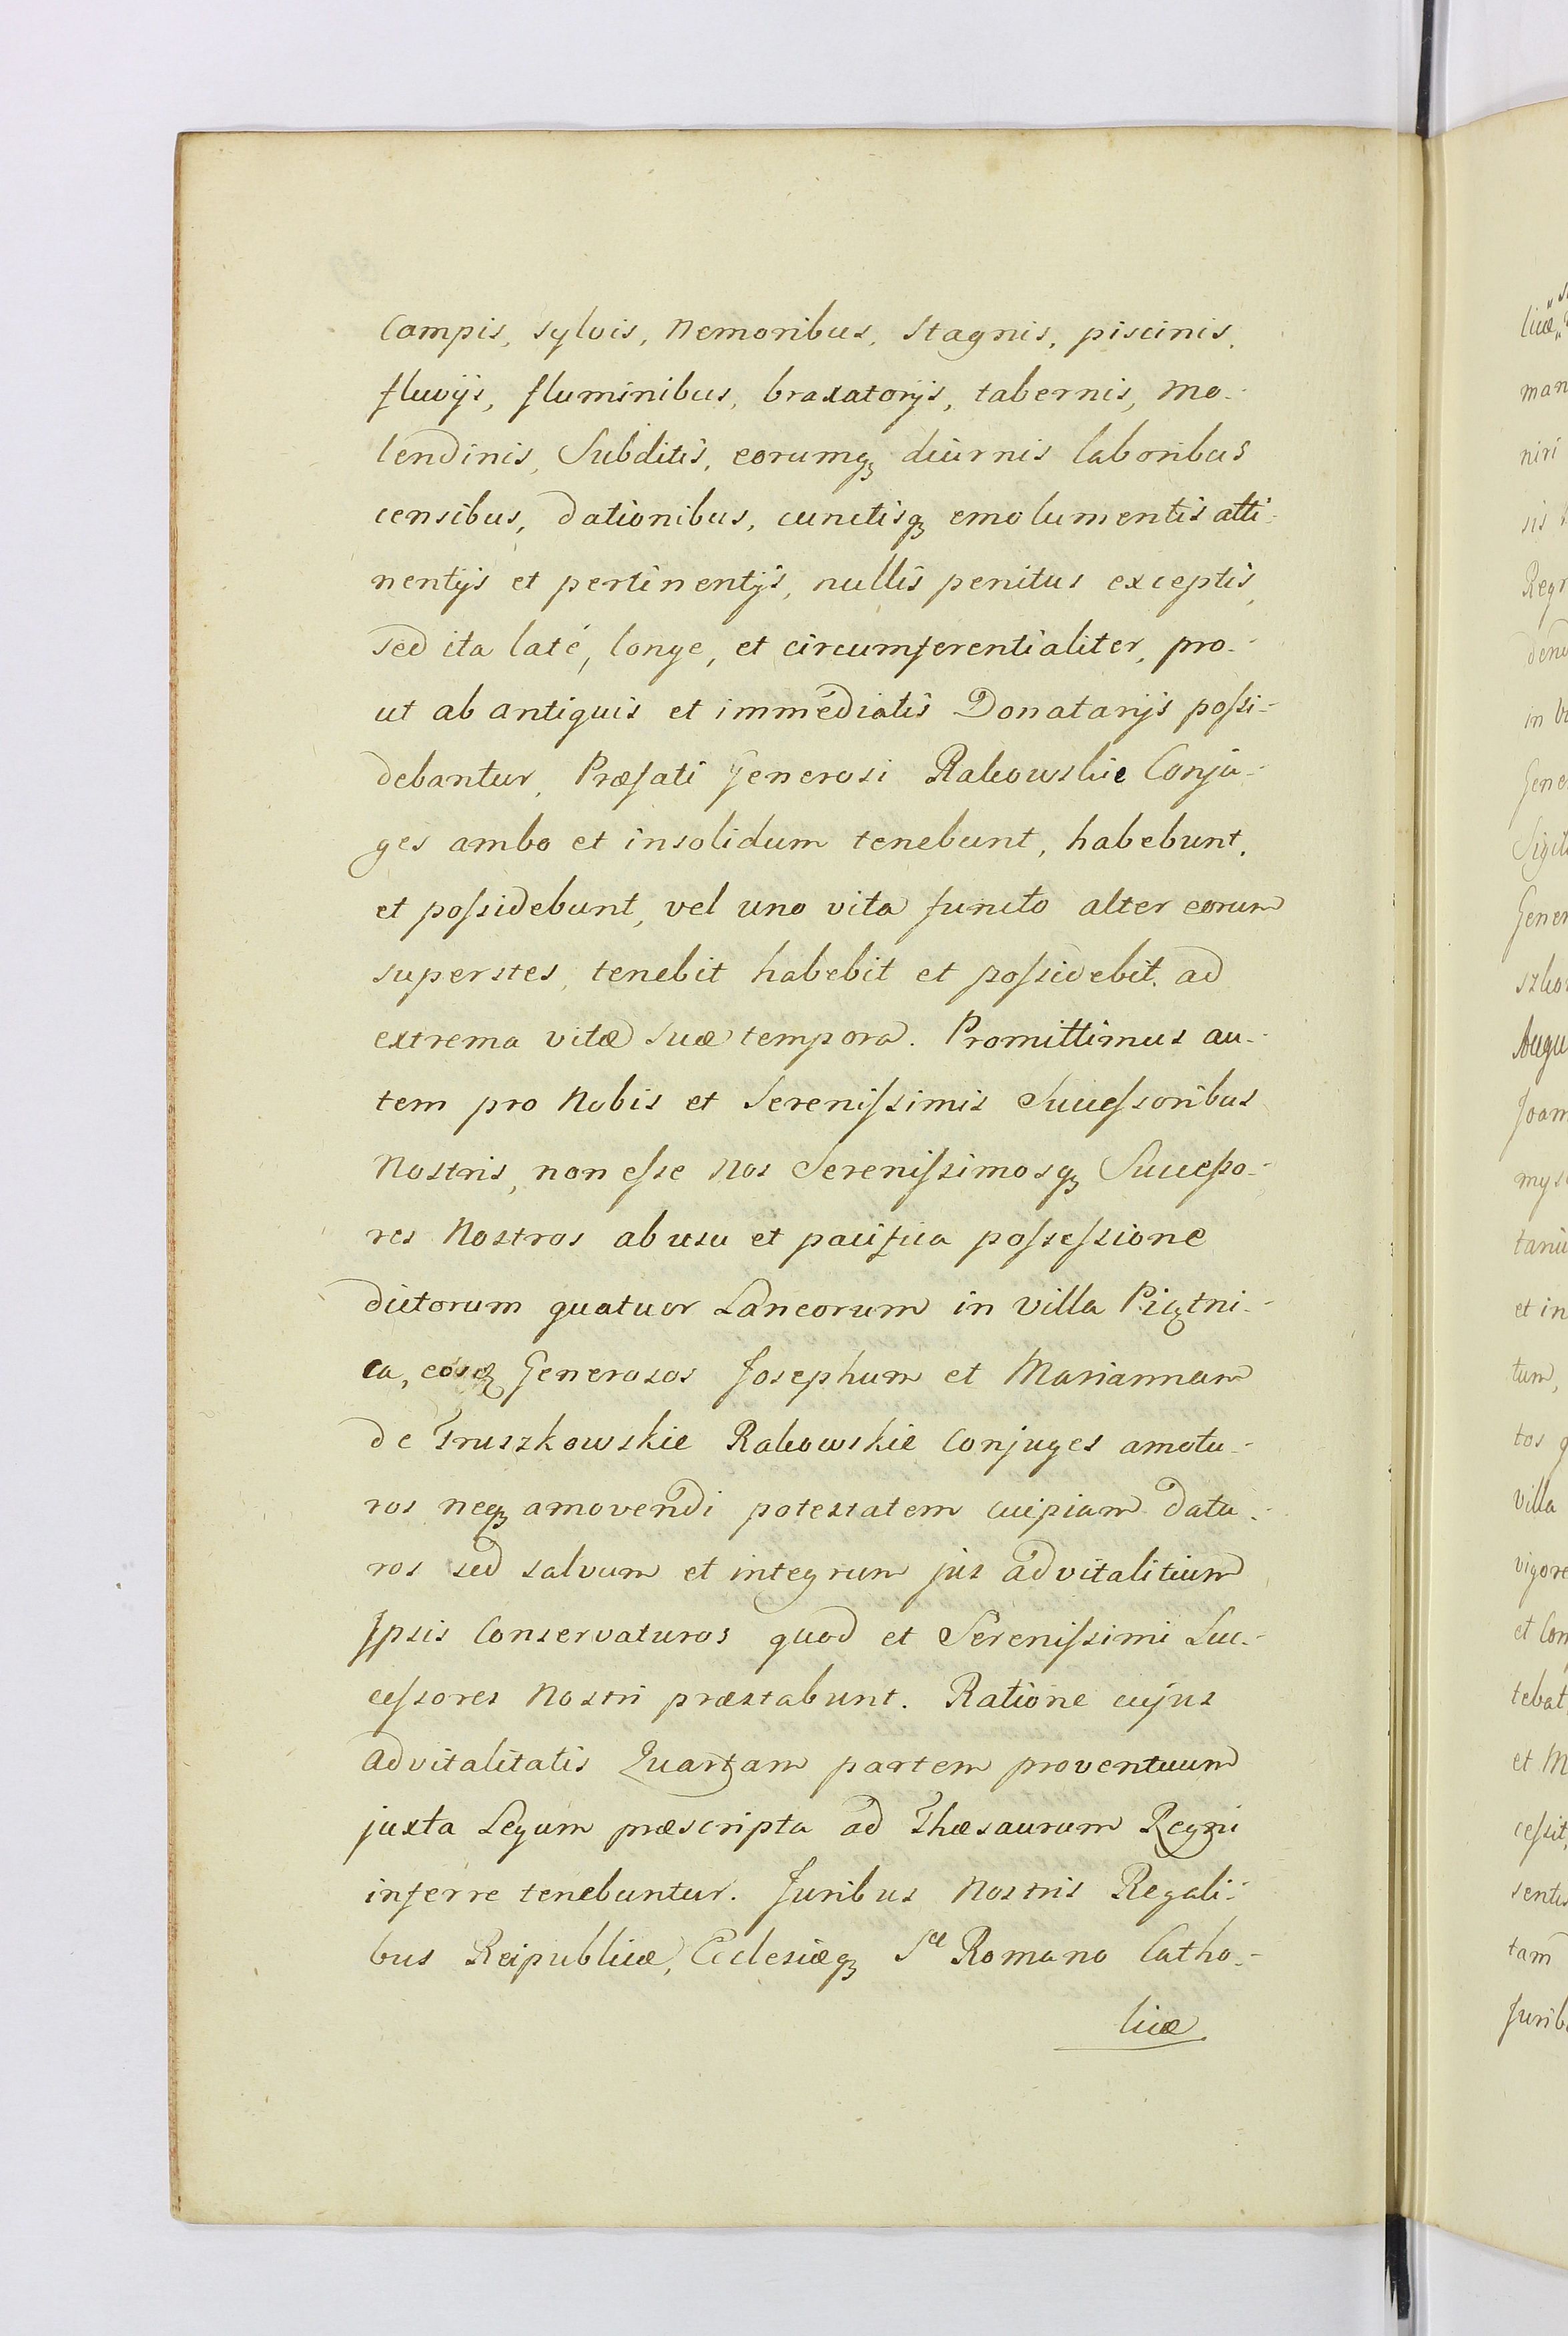 Campis, sylvis, Nemoribus, Stagnis, piscinis,
fluvijs, fluminibus, braxatorijs, tabernis, mo-
lendinis, Subditis, eorumq; diurnis laboribus
censibus, dationibus, cunctisq; emolumentis atti-
nentijs et pertinentijs, nullis penitus exceptis,
sed ita laté, longe, et circumferentialiter, pro-
ut ab antiquis et immediatis Donatarijs poſsi-
debantur, Præfati Generosi Rakowskie Conju-
ges ambo et insolidum tenebunt, habebunt,
et poſsidebunt, vel uno vita functo alter eorum
superstes, tenebit habebit et poſsidebit, ad
extrema vitæ suæ tempora. Promittimus au-
tem pro Nobis et Sereniſsimis Succeſsoribus
Nostris, non eſse Nos Sereniſsimosq; Succeſso-
res Nostros ab usu et pacifica poſseſsione
dictorum quatuor Laneorum in villa Piątni-
ca, eosq; Generosos Josephum et Mariannam
de Truszkowskie Rakowskie Conjuges amotu-
ros neq; amovendi potestatem cuipiam datu-
ros sed salvum et integrum jus advitalitium
Ipsis Conservaturos quod et Sereniſsimi Suc-
ceſsores Nostri præstabunt. Ratione cujus
advitalitatis Quartam partem proventuum
juxta Legum præscripta ad Thæsaurum Regni
inferre tenebuntur. Juribus Nostris Regali-
bus Reipublicæ, Ecclesiæq; Sæ Romano Catho-
licæ